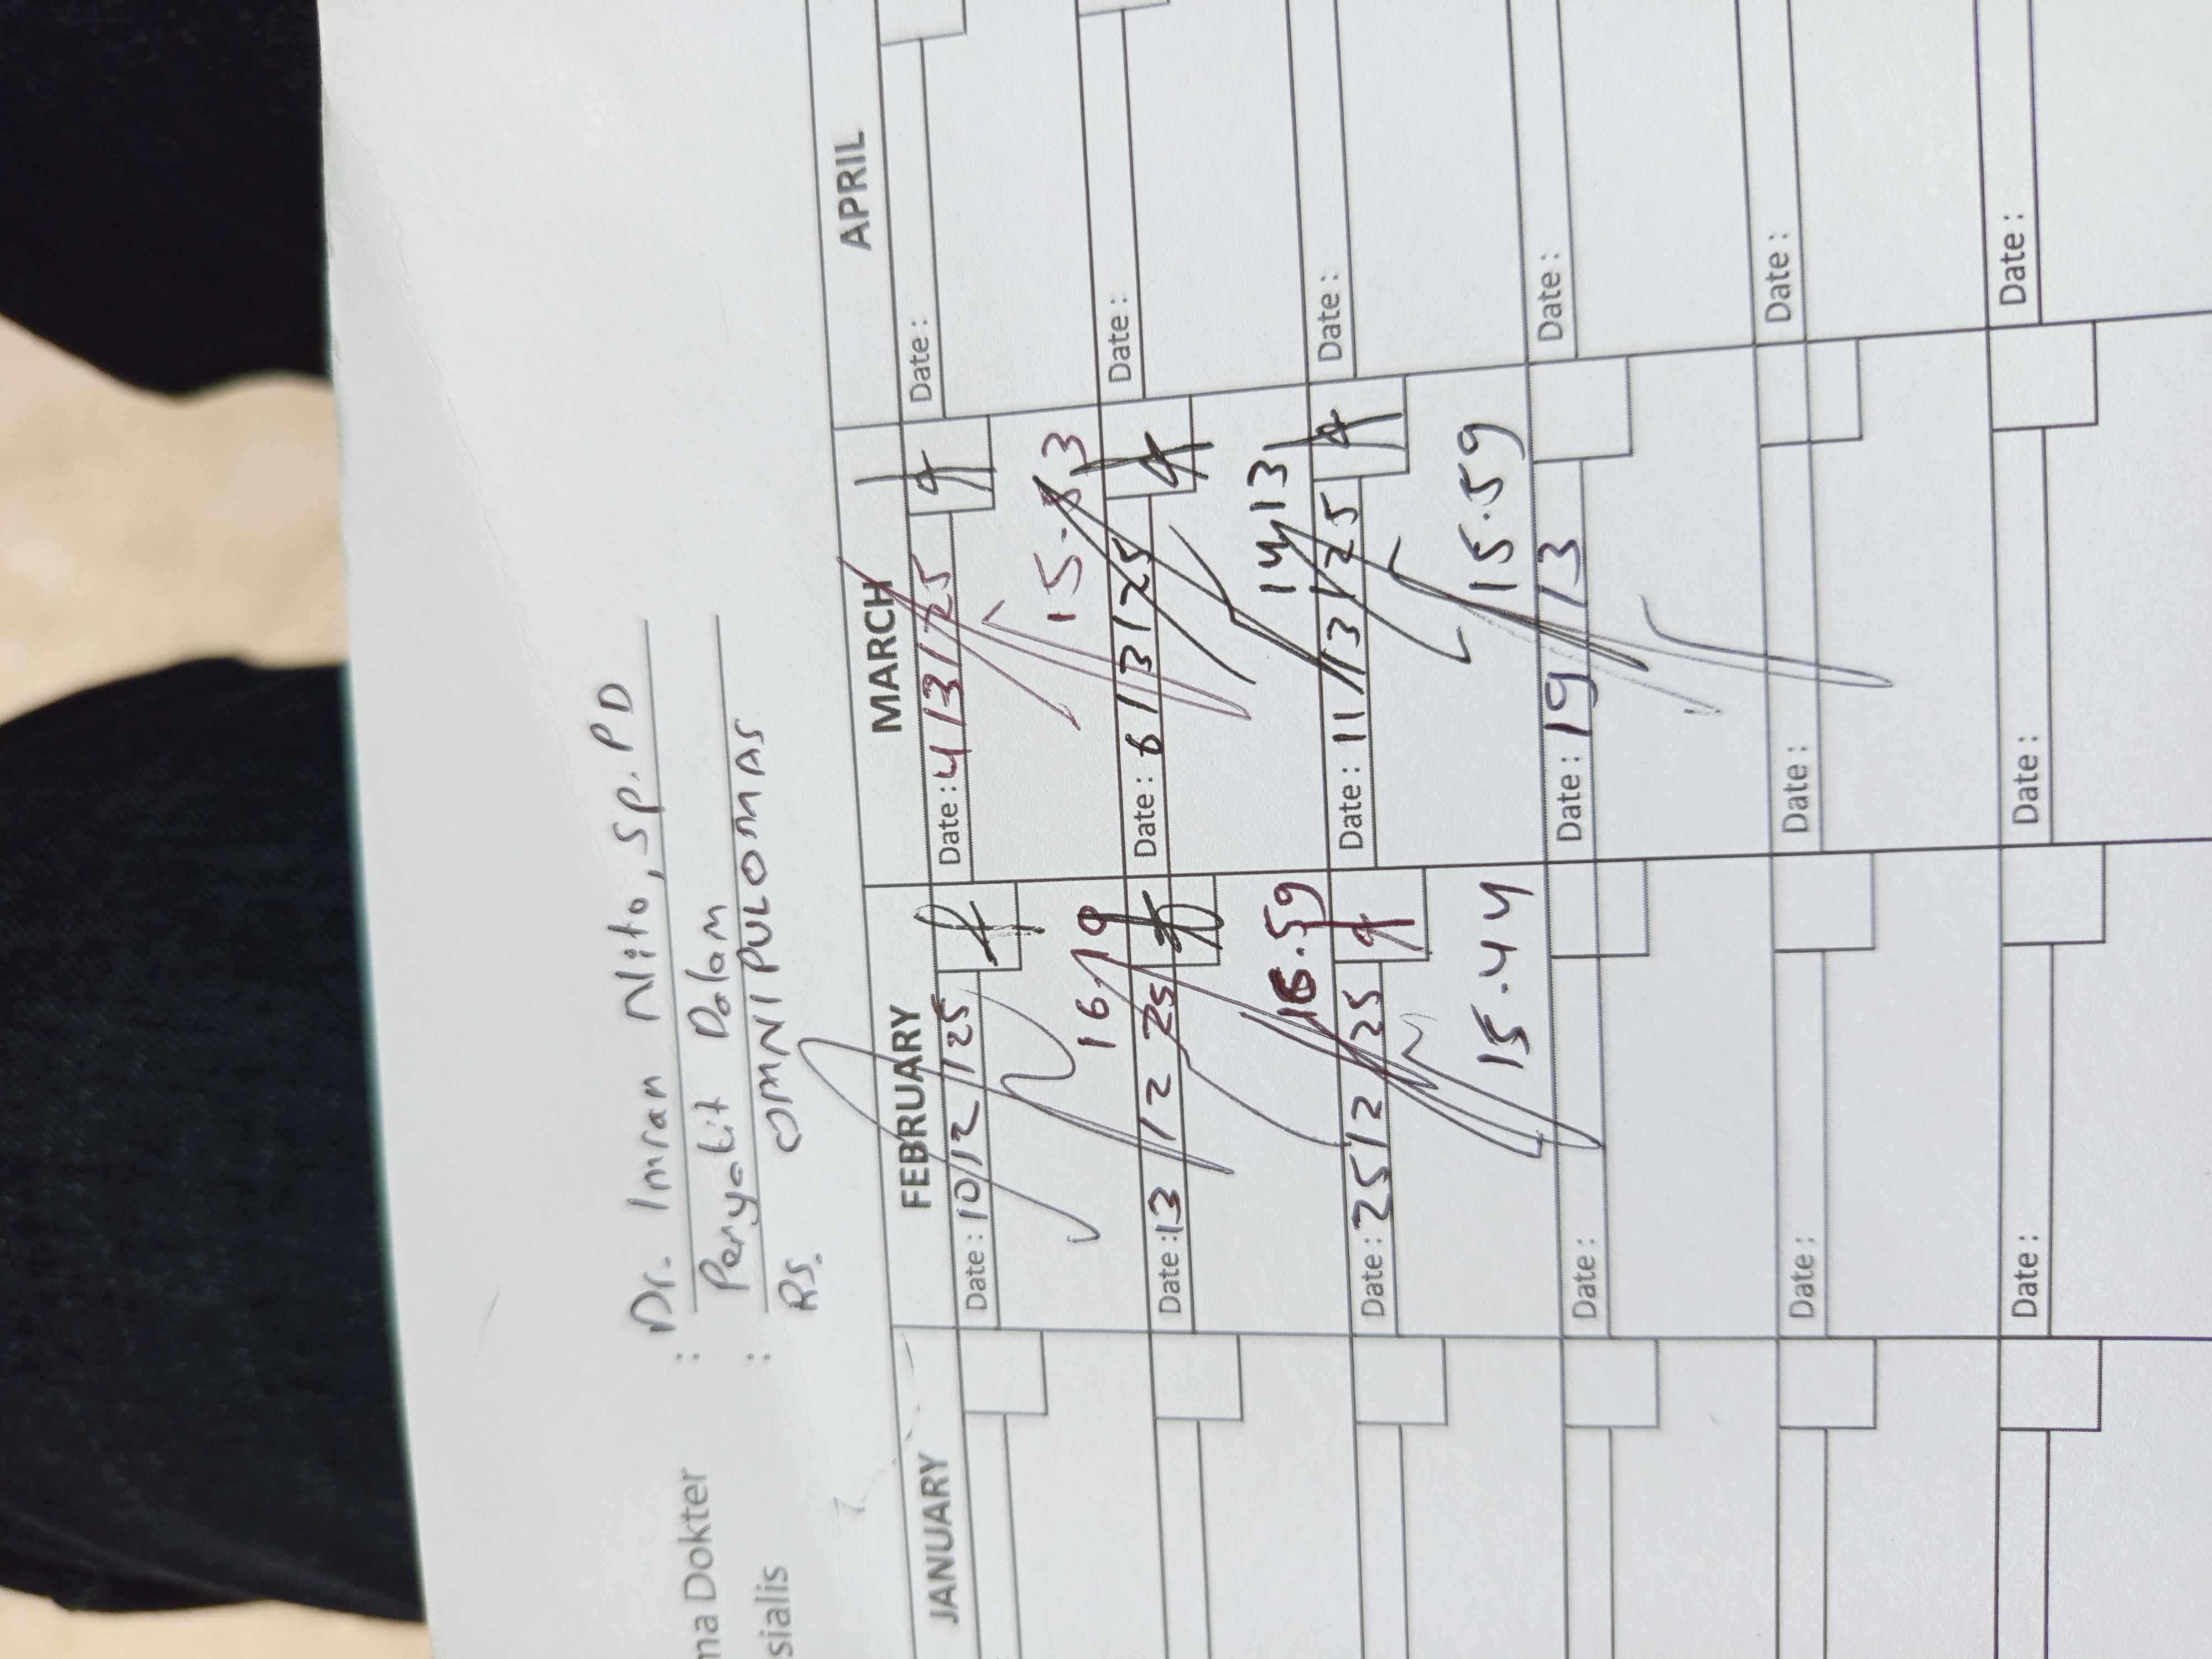 ma Dokter : Dr. Imran Nito, Sp.PD
sialis : Penyakit Dalam
RS. OMNI PULOMAS
JANUARY FEBRUARY MARCH APRIL
Date : 10/2/25 Date : 4/3/25 Date :
16.19 15.53
Date : 13/2 25 Date : 6/3/25 Date :
16.59 14.13
Date : 25/2/25 Date : 11/3/25 Date :
15.44 15.59
Date : Date : 19/3 Date :
Date : Date : Date :
Date : Date : Date :